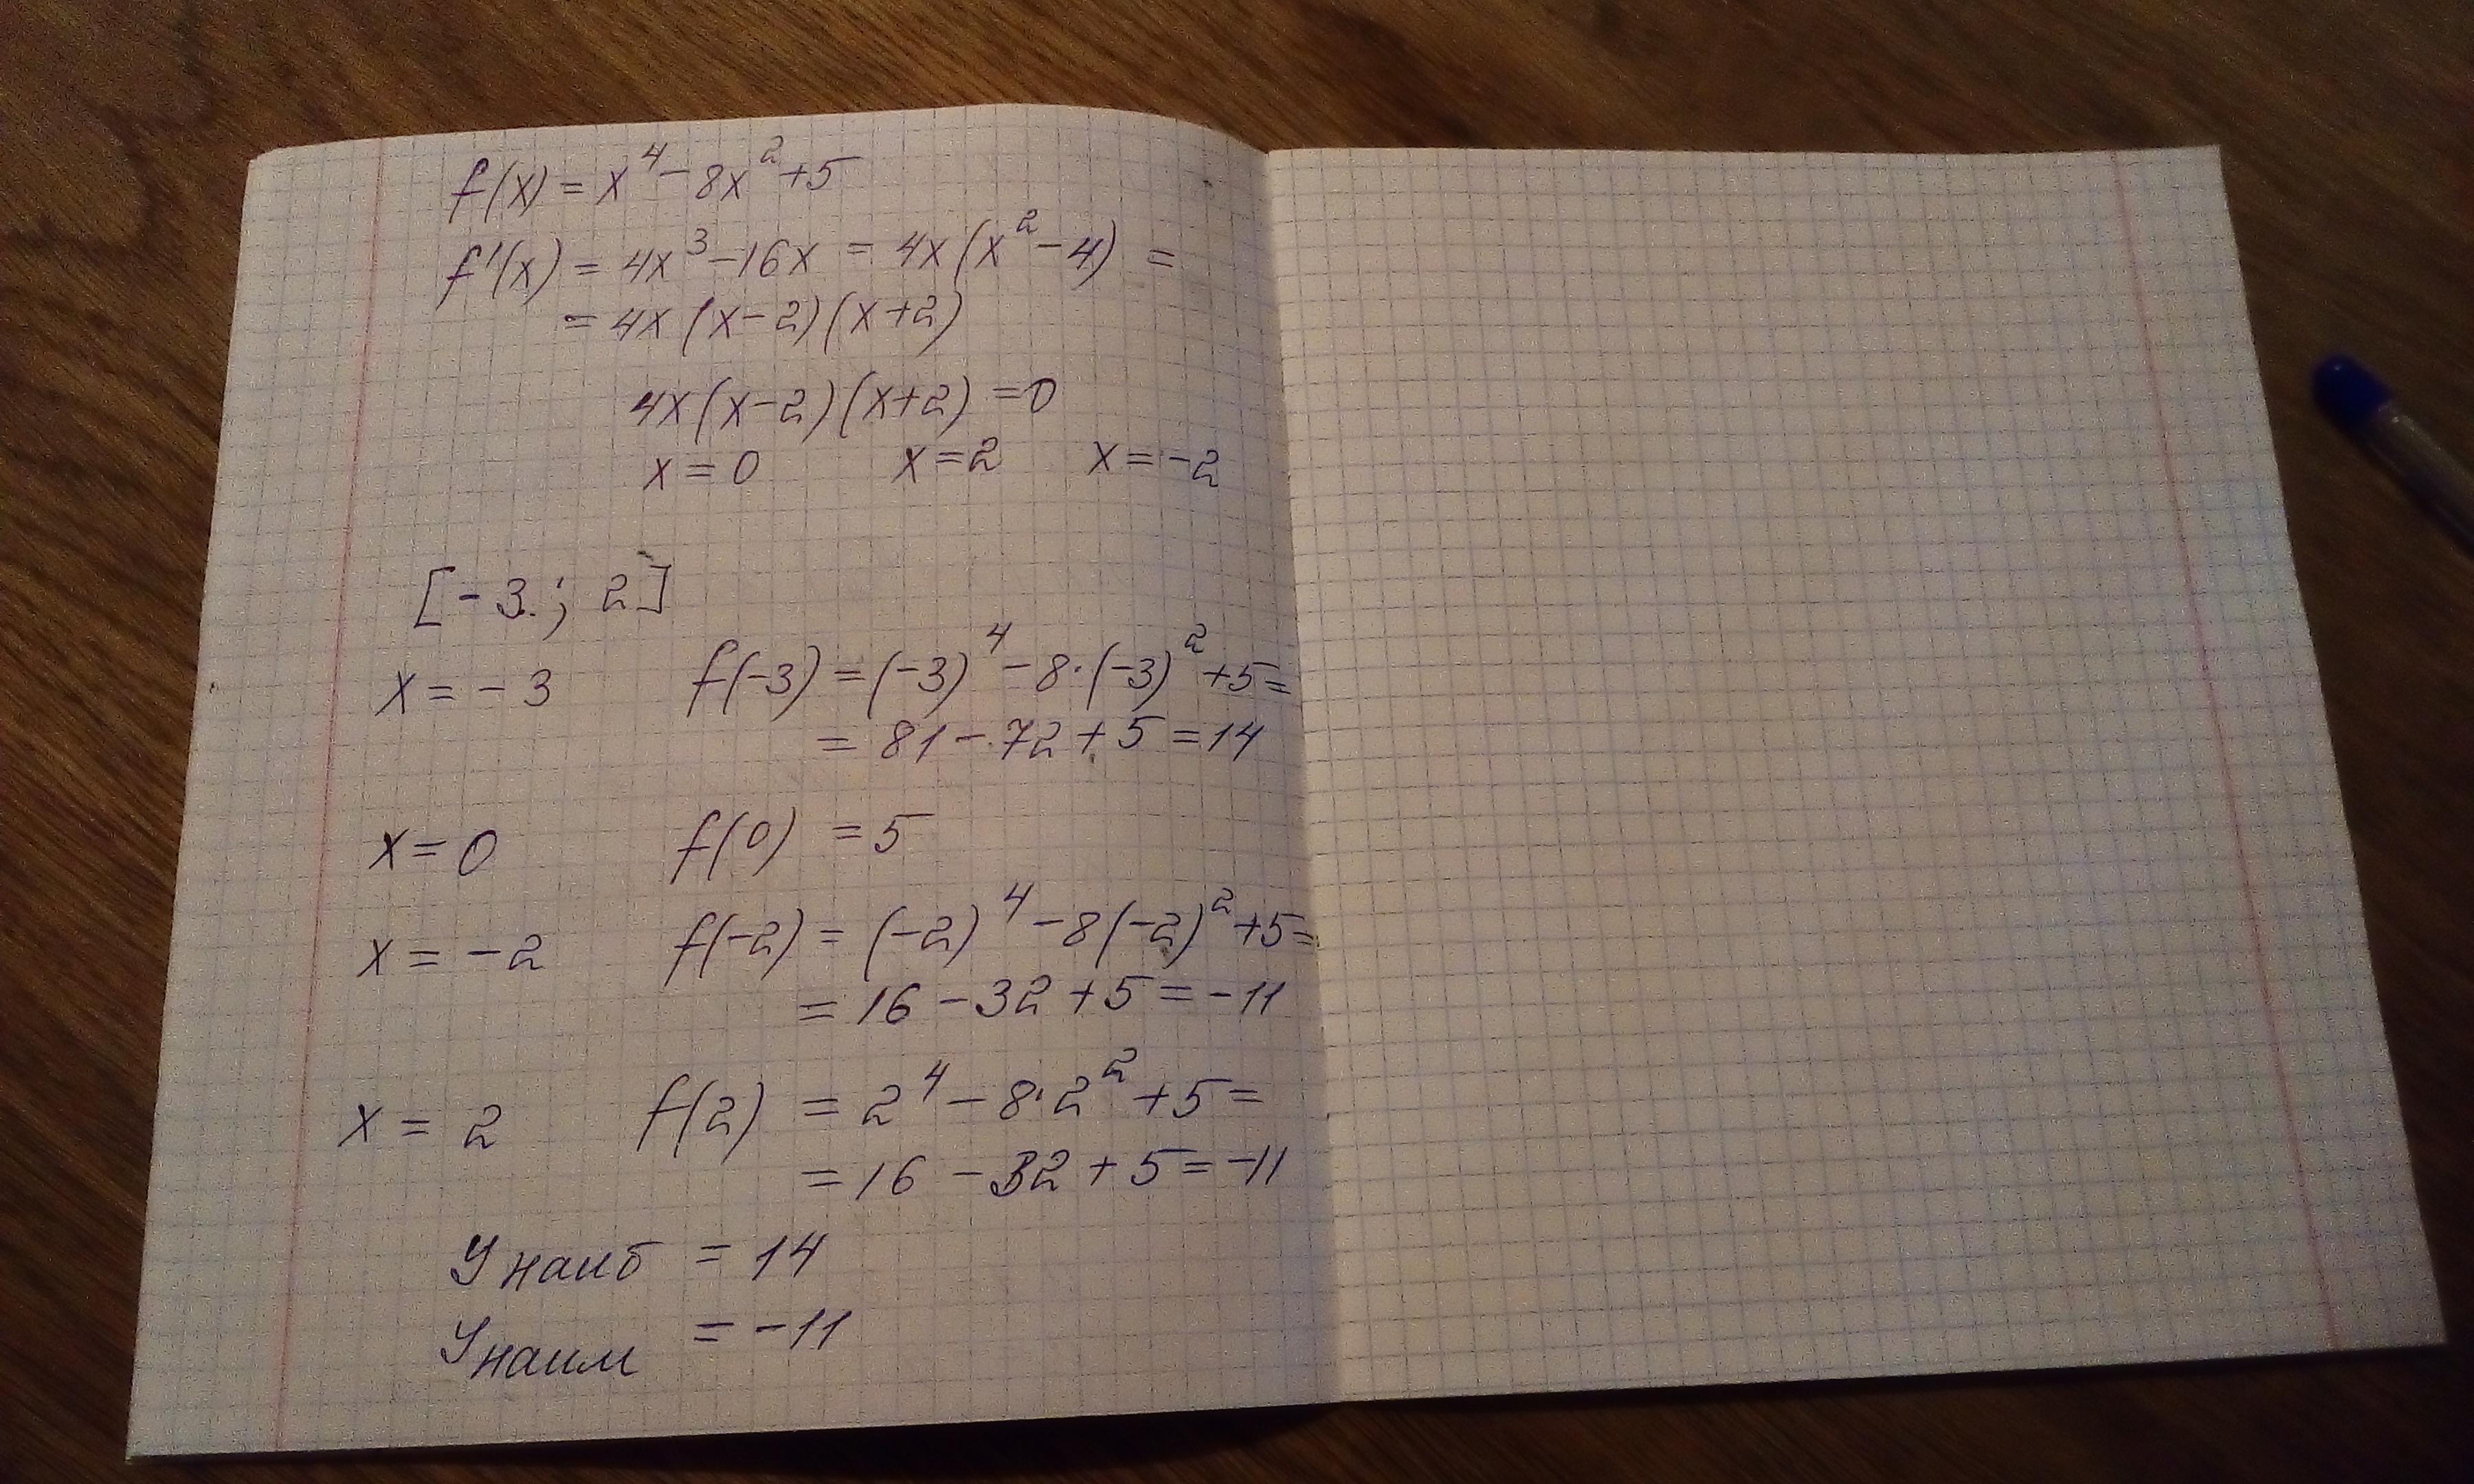 f(x) = x⁴ - 8x² + 5
f'(x) = 4x³ - 16x = 4x(x² - 4) =
= 4x(x - 2)(x + 2)
4x(x - 2)(x + 2) = 0
x = 0 x = 2 x = -2
[-3; 2]
x = -3 f(-3) = (-3)⁴ - 8·(-3)² + 5 =
= 81 - 72 + 5 = 14
x = 0 f(0) = 5
x = -2 f(-2) = (-2)⁴ - 8(-2)² + 5 =
= 16 - 32 + 5 = -11
x = 2 f(2) = 2⁴ - 8·2² + 5 =
= 16 - 32 + 5 = -11
У наиб = 14
У наим = -11